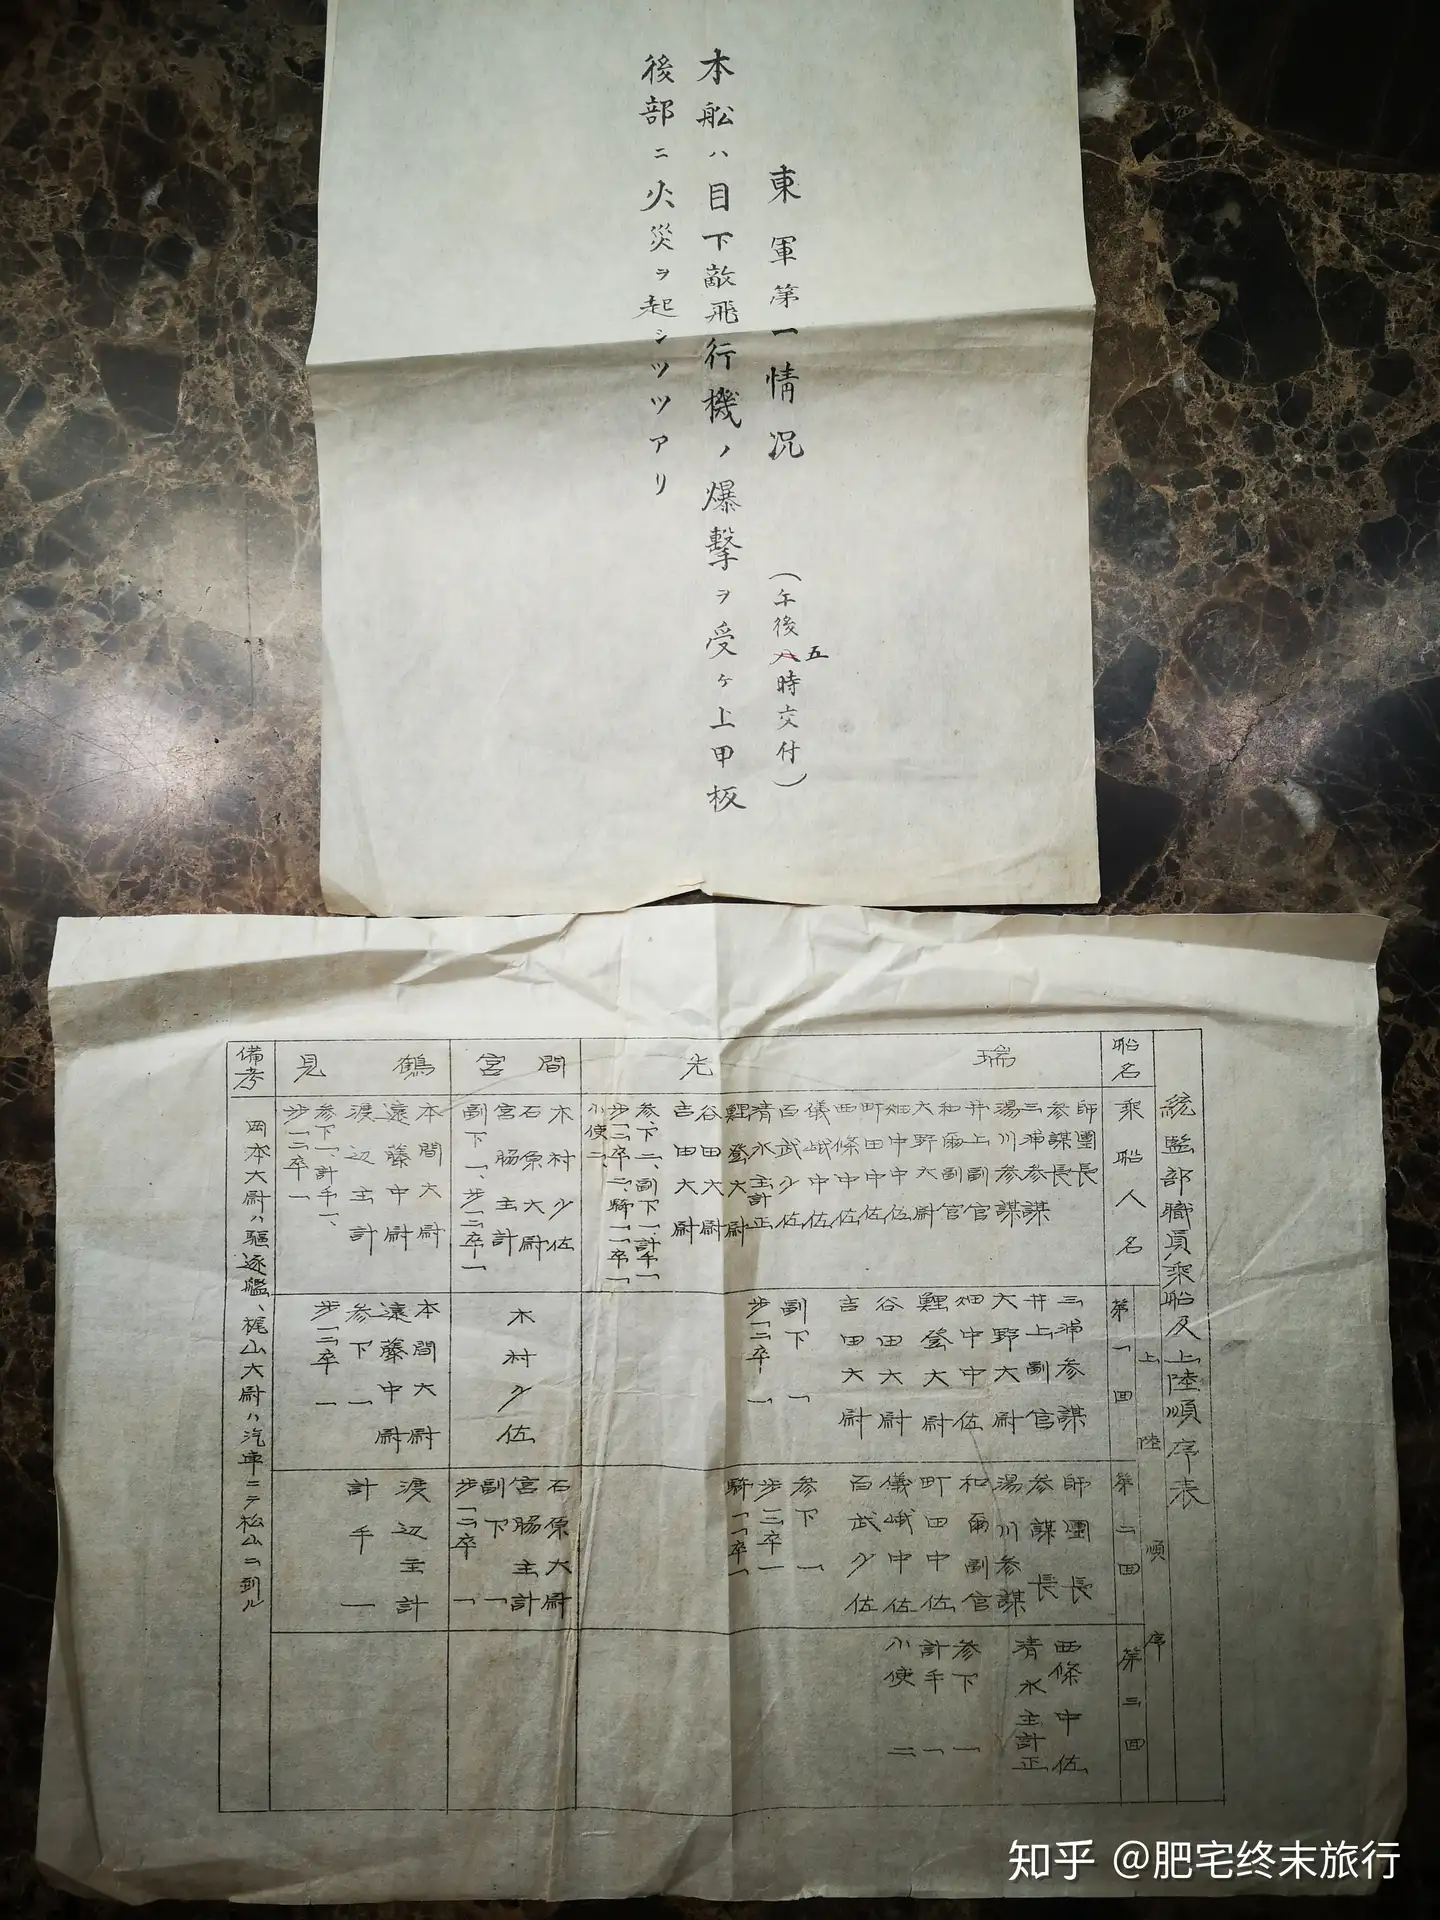 東軍第一情况
(午後八五時交付)
本舩ハ目下敵飛行機ノ爆撃ヲ受ケ上甲板
後部ニ火災ヲ起シツツアリ
統監部職員乘船及上陸順序表
船名
乘船人名
上陸順序
第一回
第二回
第三回
瑞光
師團長
參謀長
三浦參謀
湯川參謀
井上副官
和爾副官
大野大尉
畑中中佐
町田中佐
西條中佐
儀峨中佐
百武少佐
清水主計正
鯉登大尉
谷田大尉
吉田大尉
参、下二、副下一、計手一
步一二卒二、騎一一卒一
小使二、
三浦参謀
井上副官
大野大尉
畑中中佐
鯉登大尉
谷田大尉
吉田大尉
副下一
步一二卒一
師團長
参謀長
湯川参謀
和爾副官
町田中佐
儀峨中佐
百武少佐
参下一
步一二卒一
騎一一卒一
西條中佐
清水主計正
参下一
計手一
小使二
間宮
木村少佐
石原大尉
宮脇主計
副下一、步一二卒一
木村少佐
石原大尉
宮脇主計
副下一
步一二卒一
鶴見
本間大尉
遠藤中尉
渡辺主計
参下一、計手一、
步一二卒一
本間大尉
遠藤中尉
参下一
步一二卒一
渡辺主計
計手一
備考
岡本大尉ハ驅逐艦、梶山大尉ハ汽車ニテ松山ニ到ル
知乎 @肥宅终末旅行